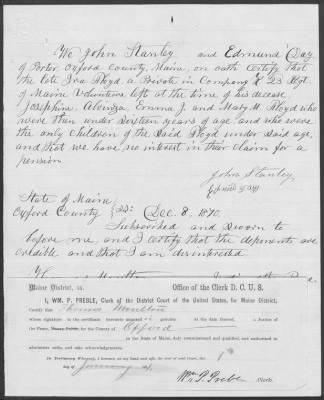 We John Stanley and Edmund Day
of Porter Oxford County, Maine, on oath certify that
the late Ira Floyd a Private in Company 23 Regt.
of Maine Volunteers left at the time of his decease
Josephine Emma J. and Mary M. Floyd who
were then under Sixteen years of age and who were
the only children of the Said Floyd under Said age,
and that we have no interest in their claim for a
pension
John Stanley
Edmund Day
State of Maine
Oxford County } SS: Dec. 8, 1870.
Subscribed and Sworn to
before me, and I certify that the deponents are
credible and that I am disinterested
Maine District, ss. Office of the Clerk D. C. U. S.
I, WM. P. PREBLE, Clerk of the District Court of the United States, for Maine District,
Certify that Thomas Moulton
whose signature to the certificate hereunto annexed is genuine at the date thereof, a Justice of
the Peace, for the County of Oxford
in the State of Maine, duly commissioned and qualified, and authorized to
administer oaths, and take acknowledgments.
In Testimony Whereof, I hereunto set my hand and affix the seal of said Court, this 9th
day of January
Wm. P. Preble Clerk.